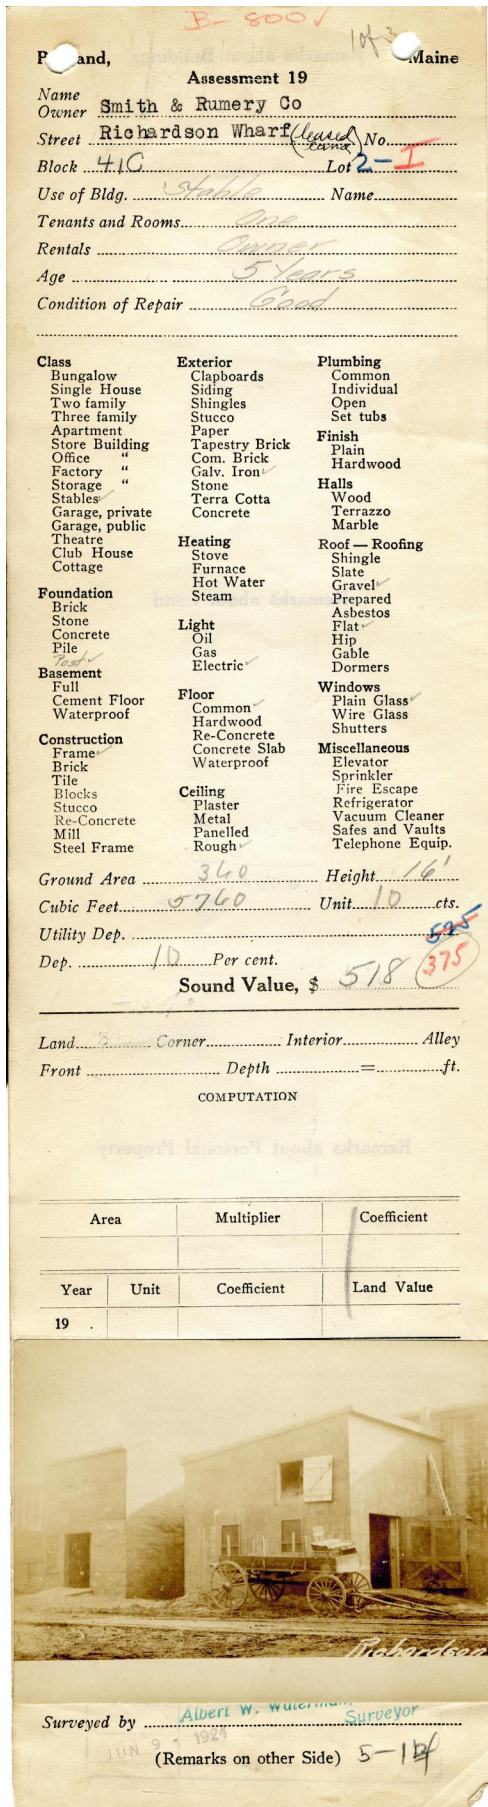 B-800✓
1 of 3
Portland, Maine
Assessment 19
Name
Owner Smith & Rumery Co
Street Richardson Wharf (leased land) No.
Block 41C Lot 2-I
Use of Bldg. Stable Name
Tenants and Rooms One
Rentals Owner
Age 5 Years
Condition of Repair Good
Class
Bungalow
Single House
Two family
Three family
Apartment
Store Building
Office "
Factory "
Storage "
Stables ✓
Garage, private
Garage, public
Theatre
Club House
Cottage
Foundation
Brick
Stone
Concrete
Pile
Post ✓
Basement
Full
Cement Floor
Waterproof
Construction
Frame ✓
Brick
Tile
Blocks
Stucco
Re-Concrete
Mill
Steel Frame
Exterior
Clapboards
Siding
Shingles
Stucco
Paper
Tapestry Brick
Com. Brick
Galv. Iron ✓
Stone
Terra Cotta
Concrete
Heating
Stove
Furnace
Hot Water
Steam
Light
Oil
Gas
Electric ✓
Floor
Common ✓
Hardwood
Re-Concrete
Concrete Slab
Waterproof
Ceiling
Plaster
Metal
Panelled
Rough ✓
Plumbing
Common
Individual
Open
Set tubs
Finish
Plain
Hardwood
Halls
Wood
Terrazzo
Marble
Roof — Roofing
Shingle
Slate
Gravel ✓
Prepared
Asbestos
Flat ✓
Hip
Gable
Dormers
Windows
Plain Glass ✓
Wire Glass
Shutters
Miscellaneous
Elevator
Sprinkler
Fire Escape
Refrigerator
Vacuum Cleaner
Safes and Vaults
Telephone Equip.
Ground Area 360 Height 16'
Cubic Feet 5760 Unit 10 cts.
Utility Dep. 525
Dep. 10 Per cent. 375
Sound Value, $ 518
Land Corner Interior Alley
Front Depth = ft.
COMPUTATION
Area Multiplier Coefficient
Year Unit Coefficient Land Value
19 .
Richardson
Surveyed by Albert W. Waterman Surveyor
JUN 9 - 1924
(Remarks on other Side) 5-1